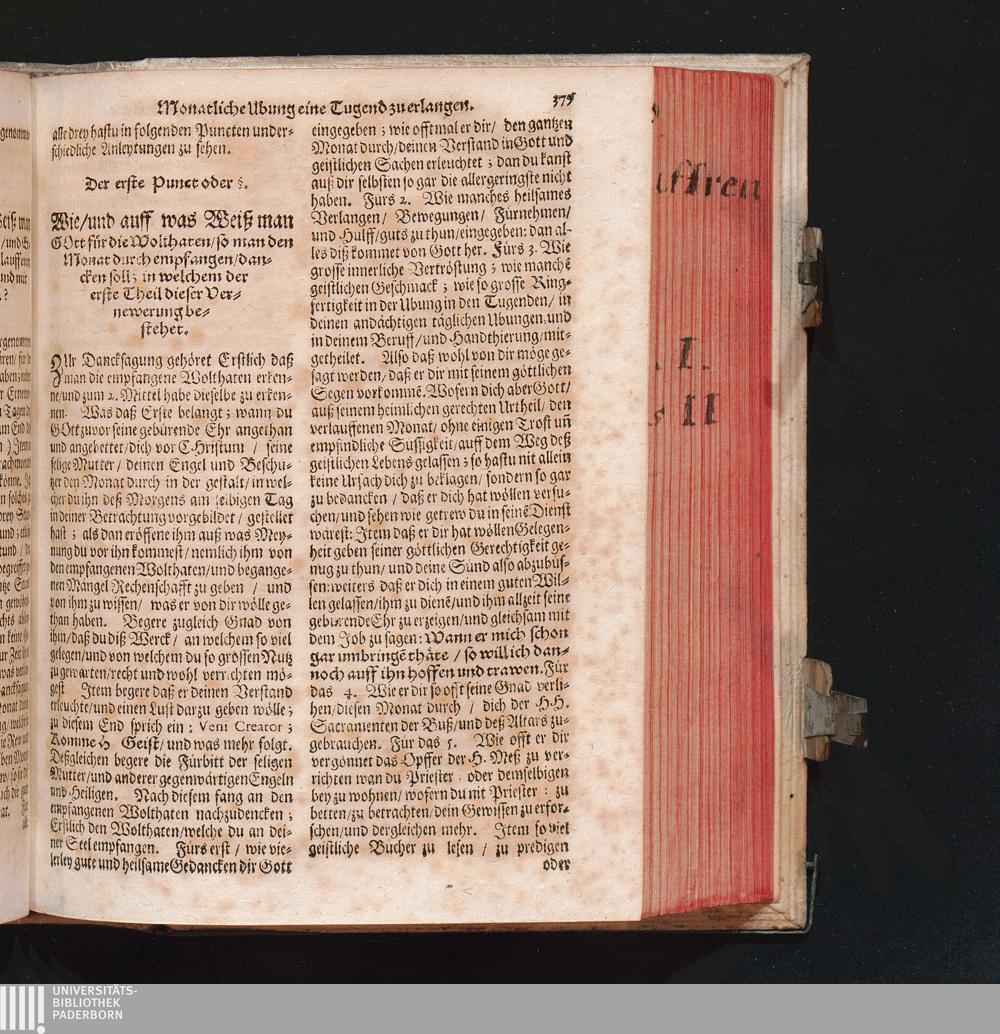 Monatliche Ubung eine Tugend zu erlangen.
375
alle drey hastu in folgenden Puncten under-
schiedliche Anleytungen zu sehen.
Der erste Punct oder §.
Wie/und auff was Weiß man
GOtt für die Wolthaten/so man den
Monat durch empfangen/dan-
cken soll; in welchem der
erste Theil dieser Ver-
newerung be-
stehet.
ZUr Dancksagung gehöret Erstlich daß
man die empfangene Wolthaten erken-
ne/und zum 2. Mittel habe dieselbe zu erken-
nen. Was daß Erste belangt; wann du
GOtt zuvor seine gebürende Ehr angethan
und angebettet/dich vor CHristum / seine
selige Mutter / deinen Engel und Beschu-
tzer den Monat durch in der gestalt/in wel-
cher du ihn deß Morgens am selbigen Tag
in deiner Betrachtung vorgebildet / gestellet
hast; als dan eröffene ihm auß was Mey-
nung du vor ihn kommest/nemlich ihm von
den empfangenen Wolthaten/und begange-
nen Mängel Rechenschafft zu geben / und
von ihm zu wissen/ was er von dir wölle ge-
than haben. Begere zugleich Gnad von
ihm/daß du diß Werck/ an welchem so viel
gelegen/und von welchem du so grossen Nutz
zu gewarten/recht und wohl verrichten mö-
gest. Item begere daß er deinen Verstand
erleuchte/und einen Lust darzu geben wölle;
zu diesem End sprich ein: Veni Creator;
Komme H. Geist/und was mehr folgt.
Deßgleichen begere die Fürbitt der seligen
Mutter/und anderer gegenwärtigen Engeln
und Heiligen. Nach diesem fang an den
empfangenen Wolthaten nachzudencken;
Erstlich den Wolthaten/welche du an dei-
ner Seel empfangen. Fürs erst / wie vie-
lerley gute und heilsame Gedancken dir Gott
eingegeben; wie offtmal er dir/ den gantzen
Monat durch/deinen Verstand in Gott und
geistlichen Sachen erleuchtet; dan du kanst
auß dir selbsten so gar die allergeringste nicht
haben. Fürs 2. Wie manches heilsames
Verlangen/ Bewegungen/ Fürnehmen/
und Hulff/guts zu thun/eingegeben: dan al-
les diß kommet von Gott her. Fürs 3. Wie
grosse innerliche Vertröstung; wie manchē
geistlichen Geschmack; wie so grosse Ring-
fertigkeit in der Ubung in den Tugenden/ in
deinen andächtigen täglichen Ubungen/und
in deinem Beruff/und Handthierung/mit-
getheilet. Also daß wohl von dir möge ge-
sagt werden/daß er dir mit seinem göttlichen
Segen vorkommē. Wofern dich aber Gott/
auß seinem heimlichen gerechten Urtheil/ den
verlauffenen Monat/ ohne einigen Trost uñ
empfindliche Sussigkeit/auff dem Weg deß
geistlichen Lebens gelassen; so hastu nit allein
keine Ursach dich zu beklagen/sondern so gar
zu bedancken / daß er dich hat wöllen versu-
chen/und sehen wie getrew du in seinē Dienst
wärest: Item daß er dir hat wöllen Gelegen-
heit geben seiner göttlichen Gerechtigkeit ge-
nug zu thun/ und deine Sünd also abzubüs-
sen: weiters daß er dich in einem guten Wil-
len gelassen/ihm zu dienē/und ihm allzeit seine
gebürende Ehr zu erzeigen/und gleichsam mit
dem Job zu sagen: Wann er mich schon
gar umbringē thäte / so will ich dan-
noch auff ihn hoffen und trawen. Für
das 4. Wie er dir so offt seine Gnad verli-
hen/diesen Monat durch / dich der H.H.
Sacramenten der Buß/und deß Altars zu-
gebrauchen. Für das 5. Wie offt er dir
vergönnet das Opffer der H. Meß zu ver-
richten wan du Priester, oder demselbigen
bey zu wohnen/ wofern du nit Priester: zu
betten/zu betrachten/dein Gewissen zu erfor-
schen/und dergleichen mehr. Item so viel
geistliche Bucher zu lesen / zu predigen
oder
UNIVERSITÄTS-
BIBLIOTHEK
PADERBORN